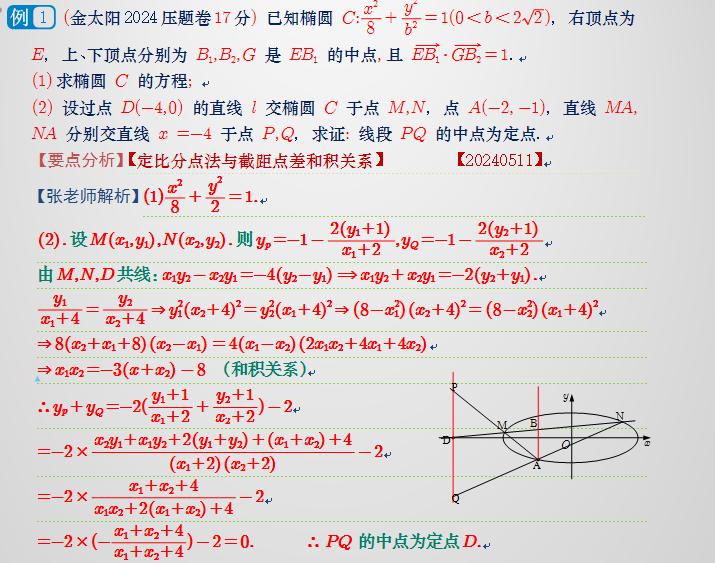 例 1 (金太阳2024压题卷17分) 已知椭圆 C:x²/8 + y²/b² = 1(0<b<2√2), 右顶点为
E, 上、下顶点分别为 B₁,B₂,G 是 EB₁ 的中点,且 →EB₁·→GB₂=1.
(1)求椭圆 C 的方程;
(2) 设过点 D(-4,0) 的直线 l 交椭圆 C 于点 M,N, 点 A(-2,-1), 直线 MA,
NA 分别交直线 x =-4 于点 P,Q, 求证: 线段 PQ 的中点为定点.
【要点分析】【定比分点法与截距点差和积关系】 【20240511】
【张老师解析】(1) x²/8 + y²/2 = 1.
(2).设M(x₁,y₁),N(x₂,y₂).则yₚ=-1-2(y₁+1)/(x₁+2),y_Q=-1-2(y₂+1)/(x₂+2)
由M,N,D共线:x₁y₂-x₂y₁=-4(y₂-y₁)⟹x₁y₂+x₂y₁=-2(y₂+y₁).
y₁/(x₁+4)=y₂/(x₂+4)⇒y₁²(x₂+4)²=y₂²(x₁+4)²⇒(8-x₁²)(x₂+4)²=(8-x₂²)(x₁+4)²
⇒8(x₂+x₁+8)(x₂-x₁)=4(x₁-x₂)(2x₁x₂+4x₁+4x₂)
⇒x₁x₂=-3(x+x₂)-8 (和积关系)
∴yₚ+y_Q=-2(y₁+1/x₁+2 + y₂+1/x₂+2)-2
=-2×(x₂y₁+x₁y₂+2(y₁+y₂)+(x₁+x₂)+4)/((x₁+2)(x₂+2))-2
=-2×(x₁+x₂+4)/(x₁x₂+2(x₁+x₂)+4)-2
=-2×(-x₁+x₂+4/x₁+x₂+4)-2=0. ∴PQ的中点为定点D.
P
y
B
N
M
D
O
x
A
Q